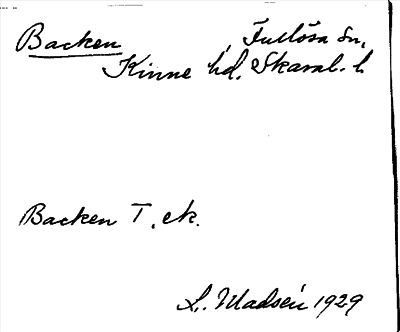 Backen, Fullösa sn,
Kinne hd. Skarab. l.
Backen T. ek.
L. Madsén 1929